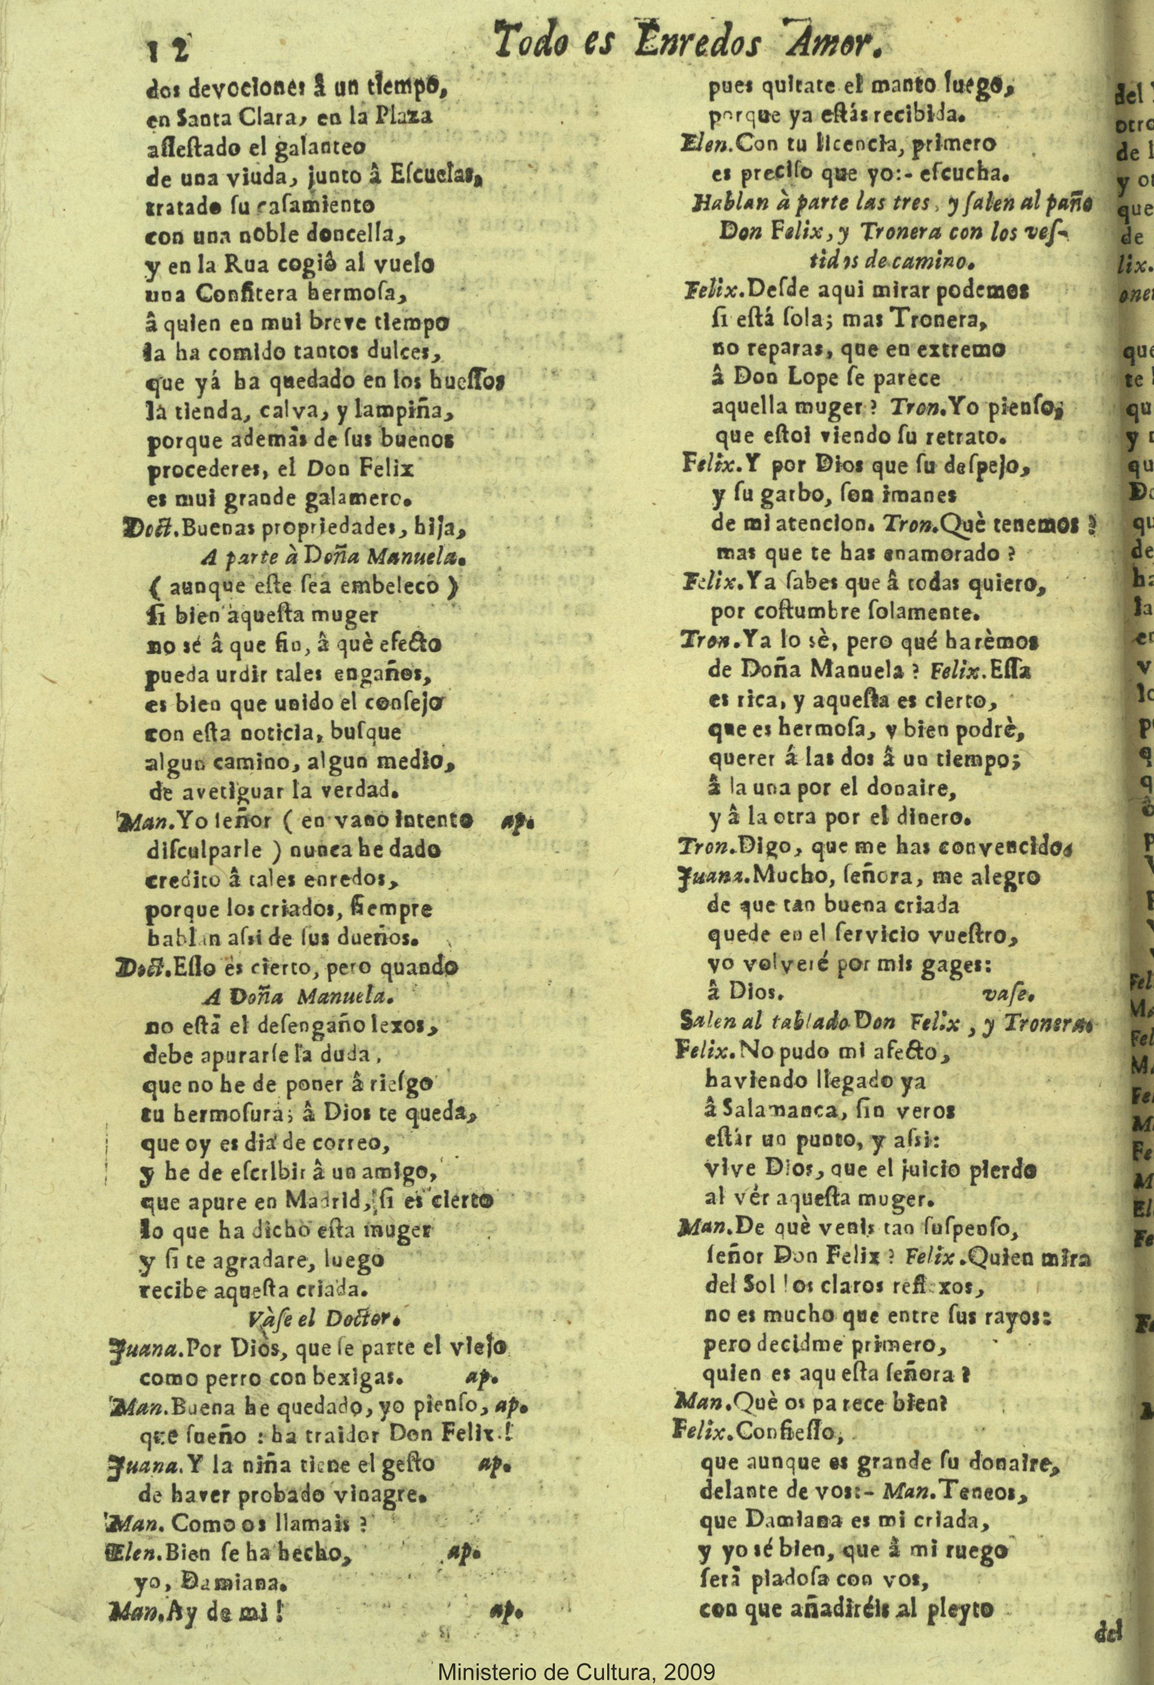 12
Todo es Enredos Amor.
dos devociones â un tiempo,
en Santa Clara, en la Plaza
aſſeſtado el galanteo
de una viuda, junto â Eſcuelas,
tratado ſu caſamiento
con una noble doncella,
y en la Rua cogiô al vuelo
una Confitera hermoſa,
â quien en mui breve tiempo
la ha comido tantos dulces,
que yá ha quedado en los hueſſos
la tienda, calva, y lampiña,
porque ademâs de ſus buenos
procederes, el Don Felix
es mui grande galamero.
Doct.Buenas propriedades, hija,
A parte à Doña Manuela.
( aunque eſte ſea embeleco )
ſi bien aqueſta muger
no sé â que fin, â què efecto
pueda urdir tales engaños,
es bien que unido el conſejo
con eſta noticia, buſque
algun camino, algun medio,
de avetiguar la verdad.
Man.Yo ſeñor ( en vano intento ap.
diſculparle ) nunca he dado
credito â tales enredos,
porque los criados, ſiempre
hablan aſsi de ſus dueños.
Doct.Eſſo es cierto, pero quando
A Doña Manuela.
no eſtâ el deſengaño lexos,
debe apurarſe la duda,
que no he de poner â rieſgo
tu hermoſura; â Dios te queda,
que oy es dia de correo,
y he de eſcribir â un amigo,
que apure en Madrid, ſi es cierto
lo que ha dicho eſta muger
y ſi te agradare, luego
recibe aqueſta criada.
Vàſe el Doctor.
Juana.Por Dios, que ſe parte el viejo
como perro con bexigas. ap.
Man.Buena he quedado, yo pienſo, ap.
que ſueño : ha traidor Don Felix!
Juana.Y la niña tiene el geſto ap.
de haver probado vinagre.
Man. Como os llamais ?
Elen.Bien ſe ha hecho, ap.
yo, Damiana.
Man.Ay de mi ! ap.
pues quitate el manto luego,
porque ya eſtás recibida.
Elen.Con tu licencia, primero
es preciſo que yo:- eſcucha.
Hablan à parte las tres, y ſalen al paño
Don Felix, y Tronera con los veſ-
tidos de camino.
Felix.Deſde aqui mirar podemos
ſi eſtá ſola; mas Tronera,
no reparas, que en extremo
â Don Lope ſe parece
aquella muger ? Tron.Yo pienſo,
que eſtoi viendo ſu retrato.
Felix.Y por Dios que ſu deſpejo,
y ſu garbo, ſon imanes
de mi atencion. Tron.Què tenemos ?
mas que te has enamorado ?
Felix.Ya ſabes que â todas quiero,
por coſtumbre ſolamente.
Tron.Ya lo sè, pero qué harèmos
de Doña Manuela ? Felix.Eſſa
es rica, y aqueſta es cierto,
que es hermoſa, y bien podrè,
querer á las dos â un tiempo;
â la una por el donaire,
y â la otra por el dinero.
Tron.Digo, que me has convencido.
Juana.Mucho, ſeñora, me alegro
de que tan buena criada
quede en el ſervicio vueſtro,
yo volveré por mis gages:
â Dios. vaſe.
Salen al tablado Don Felix, y Tronera.
Felix.No pudo mi afecto,
haviendo llegado ya
â Salamanca, ſin veros
eſtár un punto, y aſsi:
vive Dios, que el juicio pierdo
al vér aqueſta muger.
Man.De què venis tan ſuſpenſo,
ſeñor Don Felix ? Felix.Quien mira
del Sol los claros reflexos,
no es mucho que entre ſus rayos:
pero decidme primero,
quien es aqueſta ſeñora ?
Man.Què os parece bien?
Felix.Confieſſo,
que aunque es grande ſu donaire,
delante de vos:- Man.Teneos,
que Damiana es mi criada,
y yo sé bien, que â mi ruego
ſerâ piadoſa con vos,
con que añadiréis al pleyto
del
Ministerio de Cultura, 2009